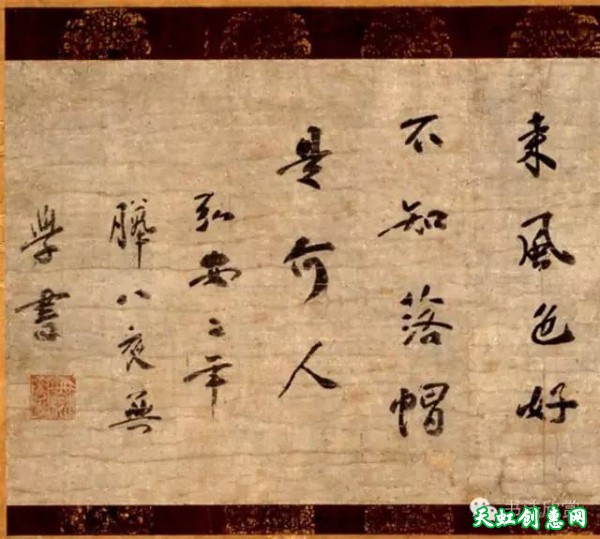 来風色好
不知落帽
是何人
弘安二年
臘八夜無
學書
天虹创惠网